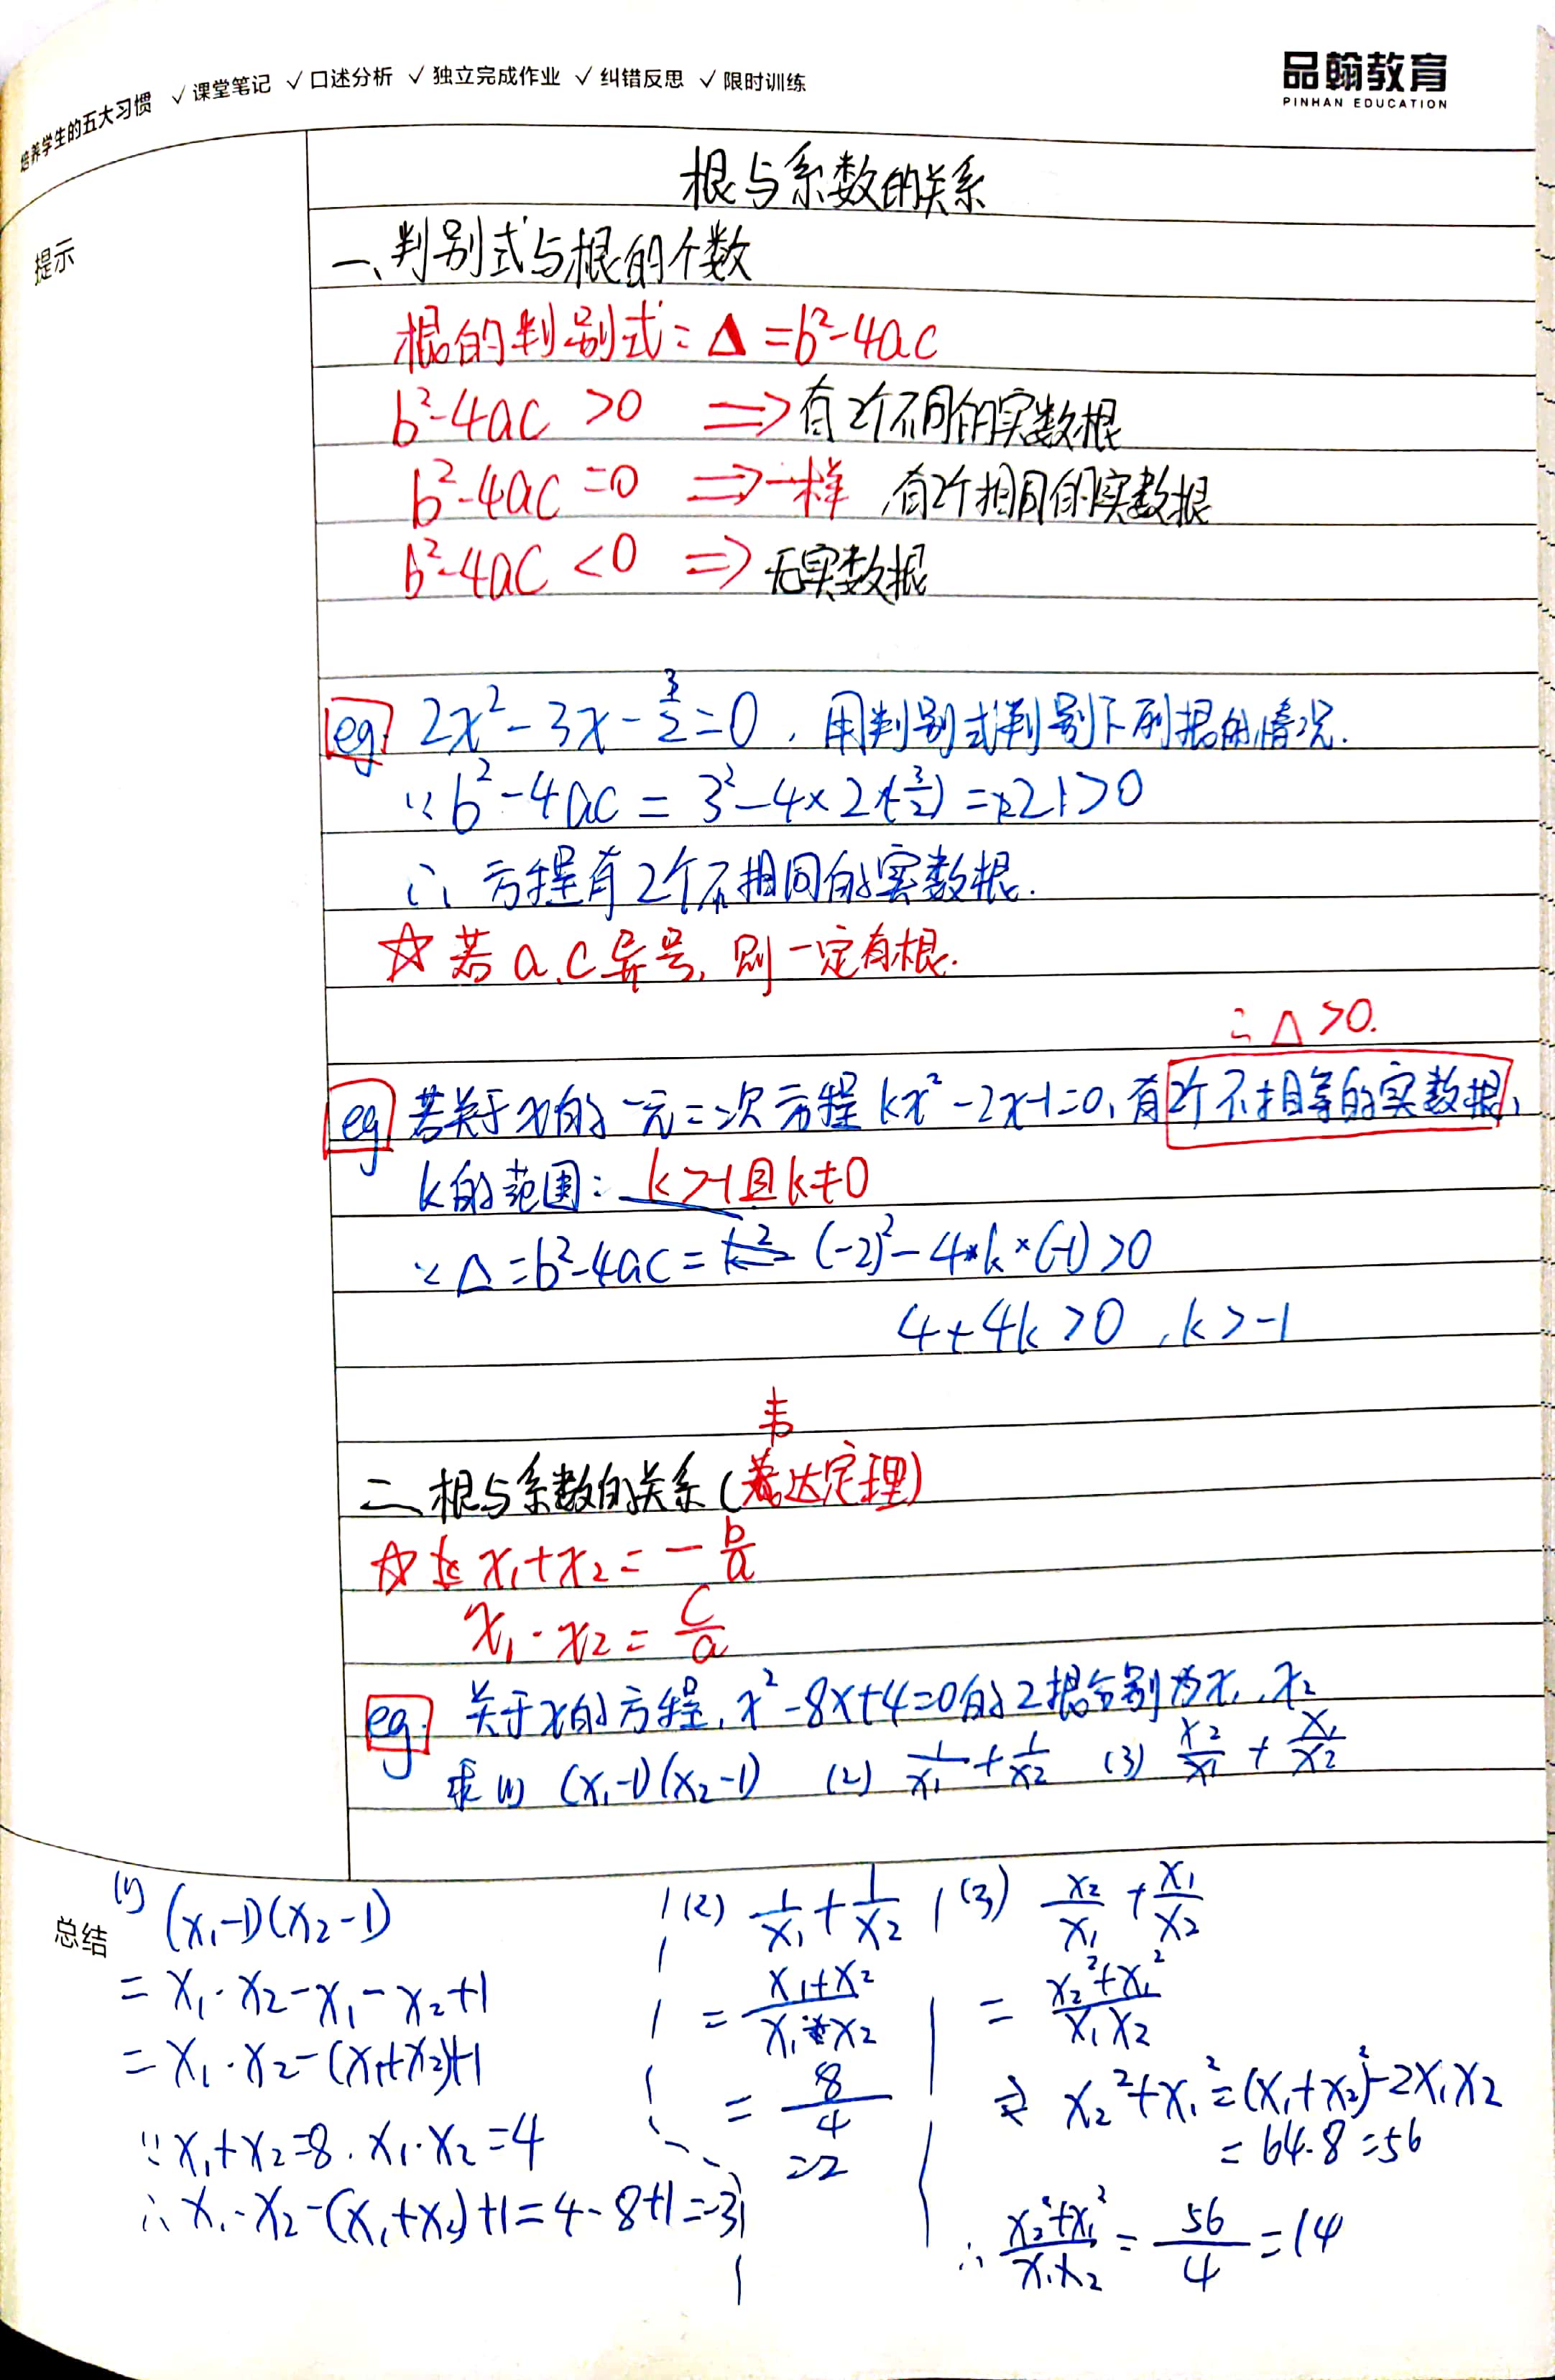 培养学生的五大习惯 √课堂笔记 √口述分析 √独立完成作业 √纠错反思 √限时训练
品翰教育
PINHAN EDUCATION
提示
根与系数的关系
一、判别式与根的个数
根的判别式：Δ=b²-4ac
b²-4ac >0 ⇒有2个不同的实数根
b²-4ac =0 ⇒一样 有2个相同的实数根
b²-4ac <0 ⇒ 无实数根
eg. 2x²-3x-3/2=0，用判别式判别下列根的情况.
∵b²-4ac = 3²-4×2×(-3/2) = 21>0
∴ 方程有2个不相同的实数根.
☆若a、c异号，则一定有根.
∴ Δ>0.
eg 若关于x的一元二次方程kx²-2x-1=0，有2个不相等的实数根，
k的范围：k>-1且k≠0
∵Δ=b²-4ac= (-2)²-4×k×(-1)>0
4+4k>0，k>-1
韦
二、根与系数的关系（达定理）
☆ x₁+x₂=-b/a
x₁·x₂=c/a
eg. 关于x的方程，x²-8x+4=0的2根分别为x₁、x₂
求(1) (x₁-1)(x₂-1) (2) 1/x₁+1/x₂ (3) x₂/x₁+x₁/x₂
总结
(1) (x₁-1)(x₂-1)
=x₁·x₂-x₁-x₂+1
=x₁·x₂-(x₁+x₂)+1
∵x₁+x₂=8，x₁·x₂=4
∴x₁·x₂-(x₁+x₂)+1=4-8+1=-3
(2) 1/x₁+1/x₂
=(x₁+x₂)/(x₁·x₂)
=8/4
=2
(3) x₂/x₁+x₁/x₂
=(x₂²+x₁²)/(x₁x₂)
x₂²+x₁²=(x₁+x₂)²-2x₁x₂
=64-8=56
∴(x₂²+x₁²)/(x₁x₂)=56/4=14